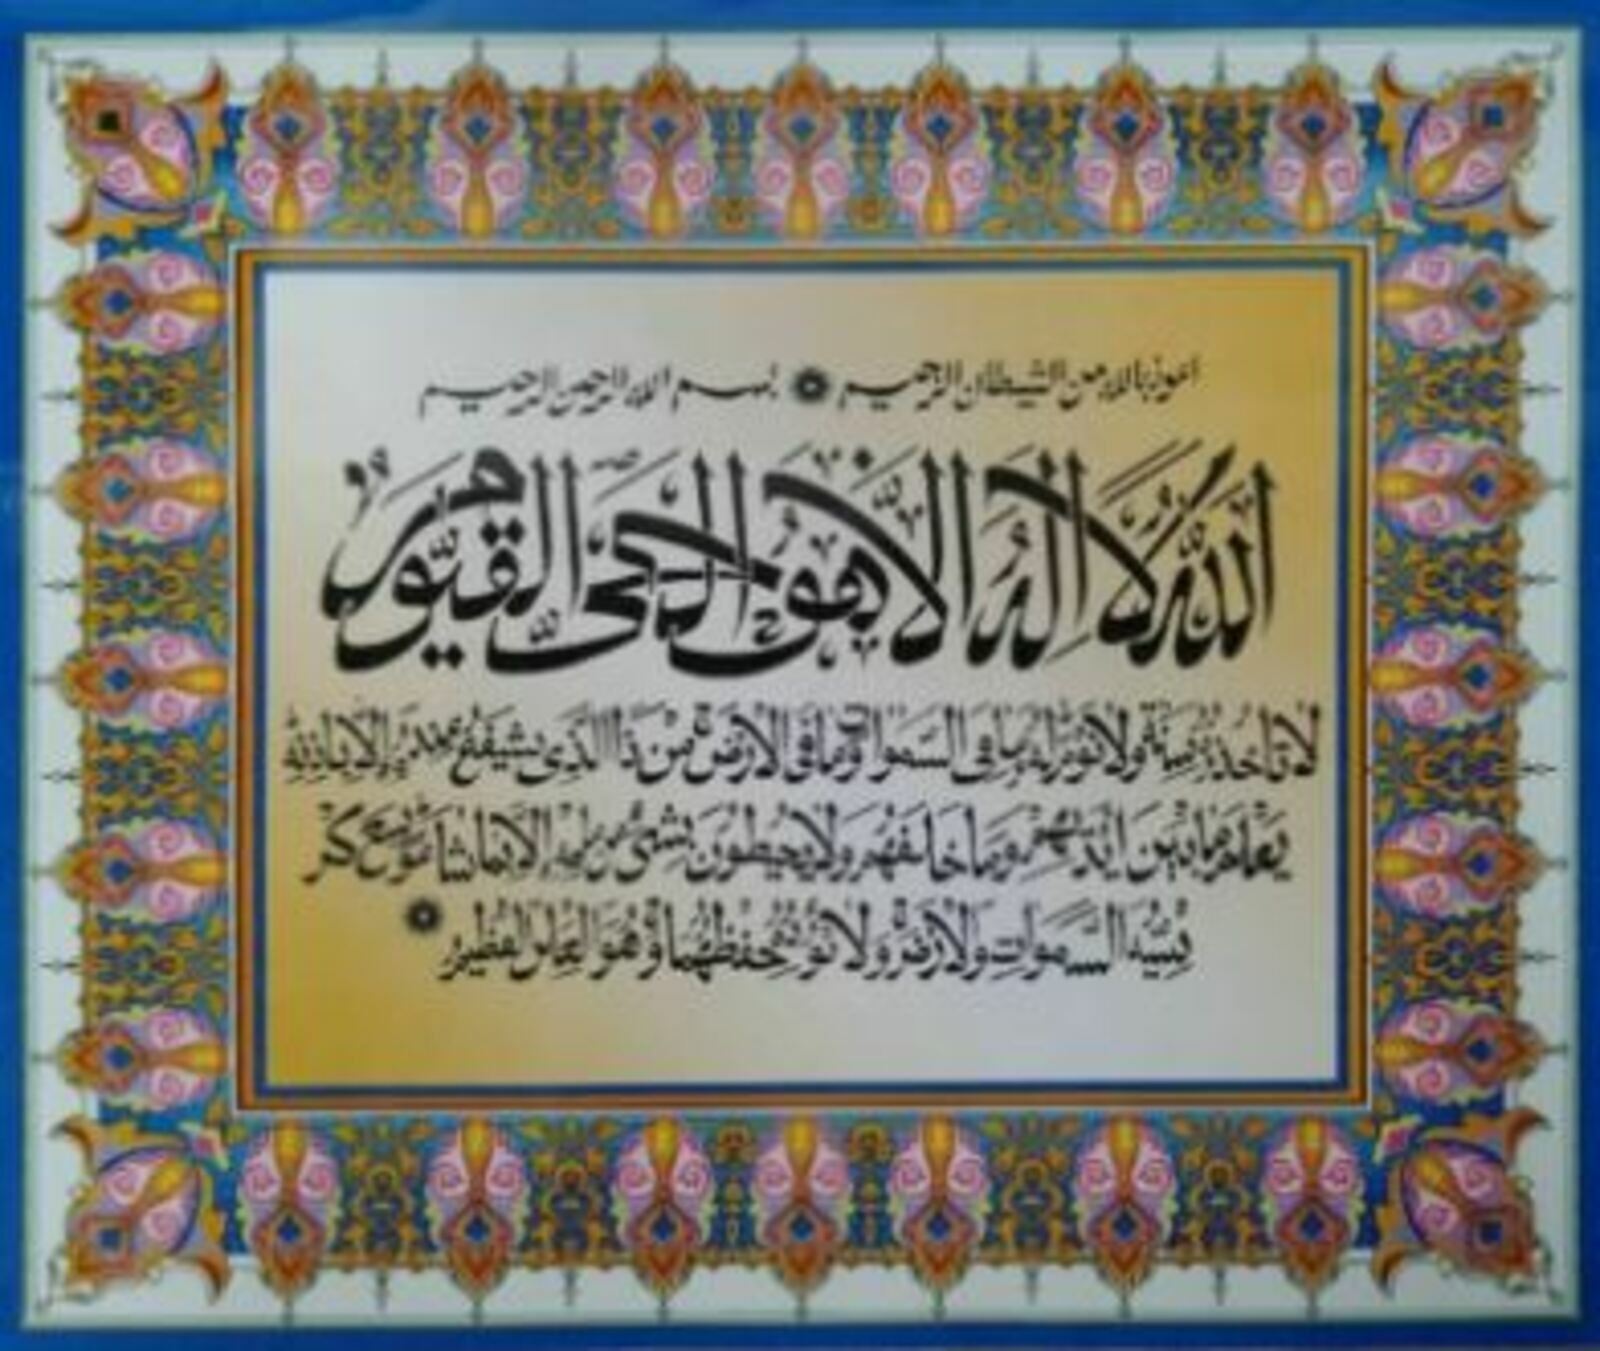 اعوذ بالله من الشيطان الرجيم بسم الله الرحمن الرحيم
اَللّٰهُ لَا اِلٰهَ اِلَّا هُوَ الْحَىُّ الْقَيُّومُ
لَا تَأْخُذُهُ سِنَةٌ وَلَا نَوْمٌ لَهُ مَا فِى السَّمٰوَاتِ وَمَا فِى الْاَرْضِ مَنْ ذَا الَّذِى يَشْفَعُ عِنْدَهُ اِلَّا بِاِذْنِهِ
يَعْلَمُ مَا بَيْنَ اَيْدِيهِمْ وَمَا خَلْفَهُمْ وَلَا يُحِيطُونَ بِشَىْءٍ مِنْ عِلْمِهِ اِلَّا بِمَا شَاءَ وَسِعَ كُرْ
سِيُّهُ السَّمٰوَاتِ وَالْاَرْضَ وَلَا يَؤُدُهُ حِفْظُهُمَا وَهُوَ الْعَلِىُّ الْعَظِيمُ